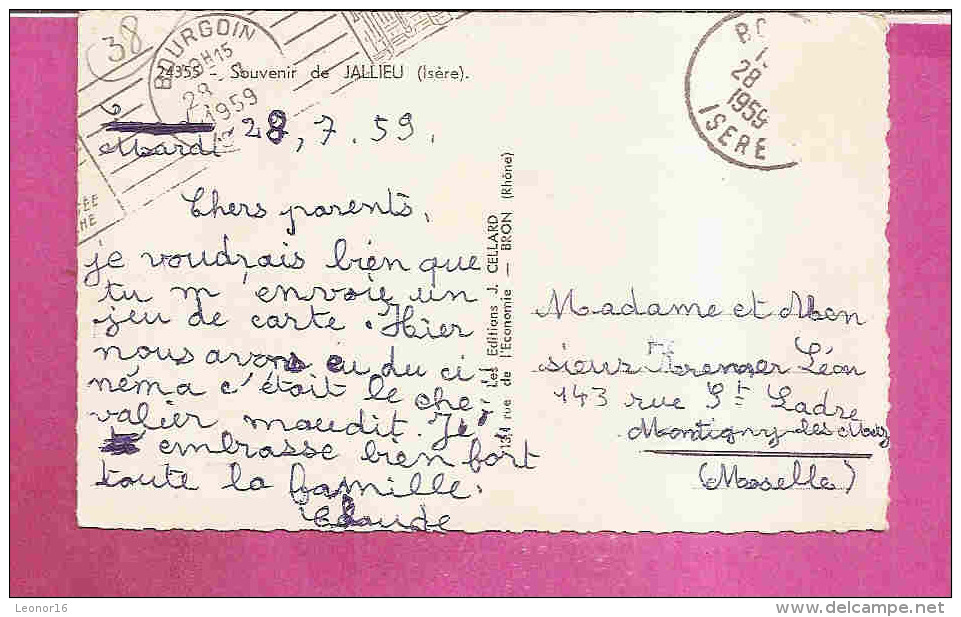 38
BOURGOIN
H15
28
1959
24355 - Souvenir de JALLIEU (Isère).
Mardi 28, 7. 59.
Chers parents,
je voudrais bien que
tu m'envoie un
jeu de carte. Hier
nous avons eu du ci
néma c'était le che-
valier maudit. J'
embrasse bien fort
toute la famille.
Claude
Les Editions J. CELLARD
131 rue de l'Economie — BRON (Rhône)
28
1959
ISERE
Madame et Mon
sieur Léon
143 rue St Ladre
Montigny-les-Metz
(Moselle)
Leonor16
www.delcampe.net